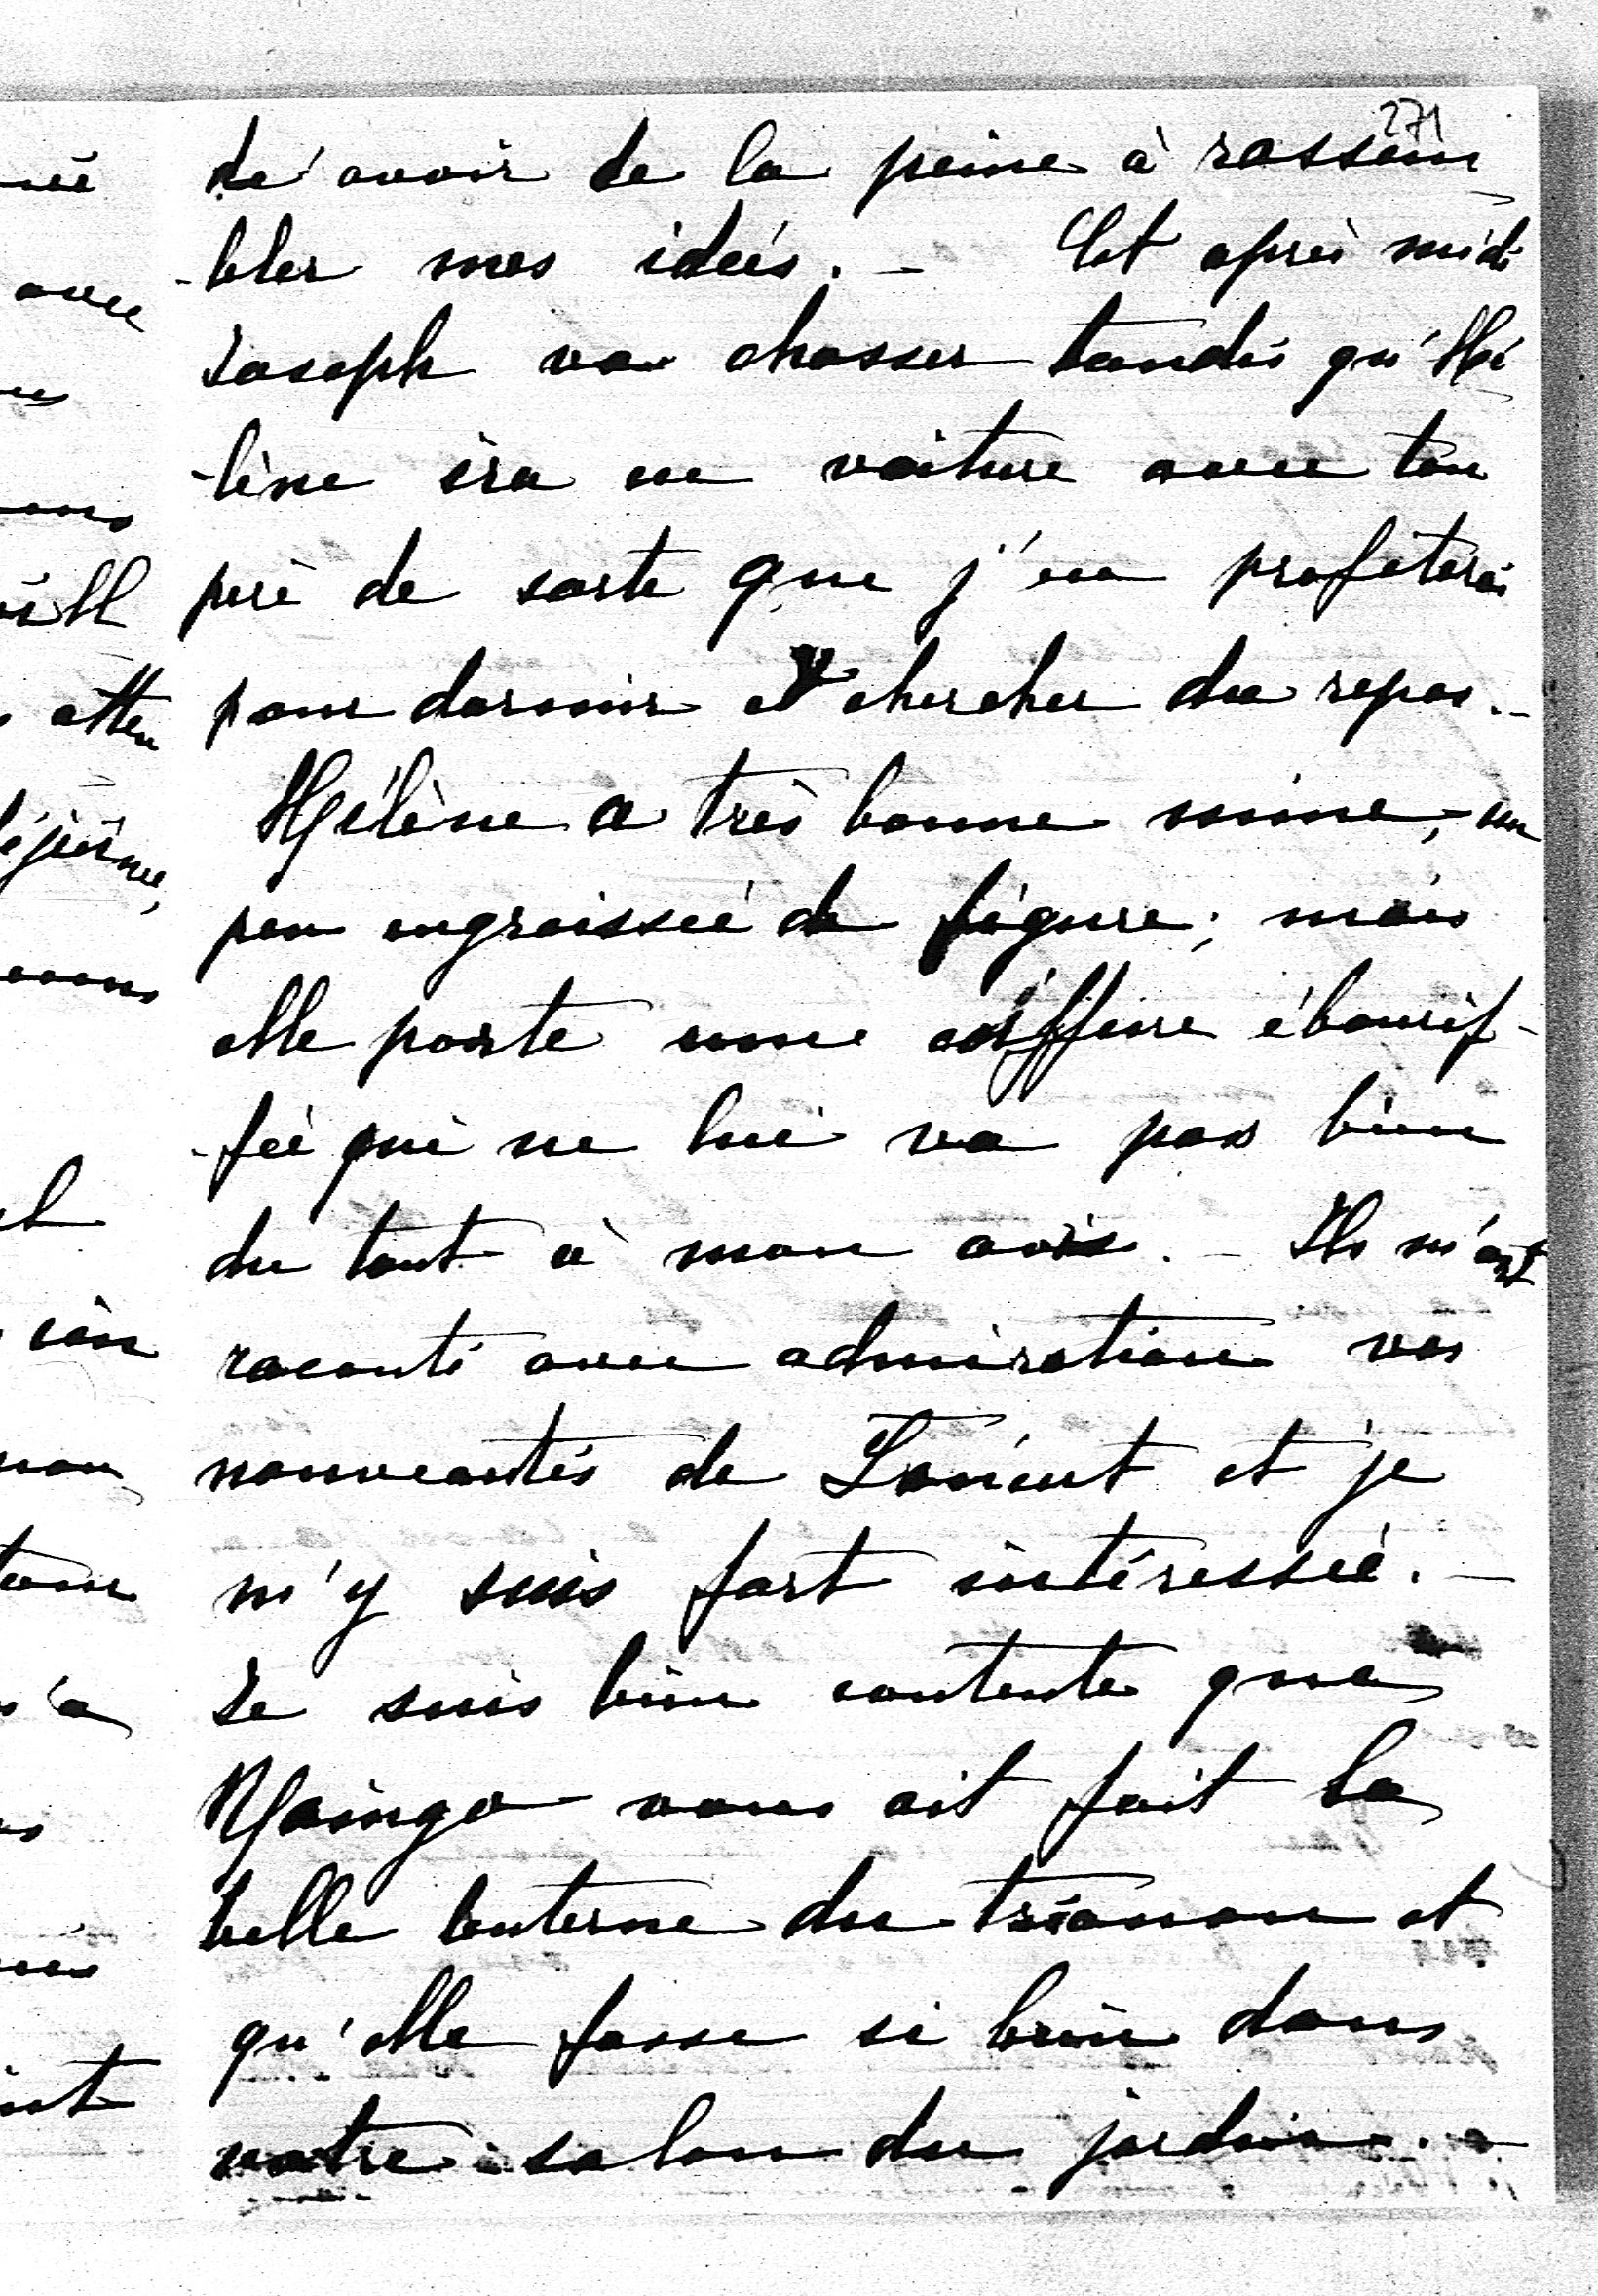 271
de avoir de la peine à rassem
-bler mes idées. - Cet après midi
Joseph va chasser tandis qu'Hé
-lène ira en voiture avec ton
père de sorte que j'en profiterai
pour dormir et chercher du repos. -
Hélène a très bonne mine, - un
peu engraissée de figure; mais
elle porte une coiffure ébourif-
-fée qui ne lui va pas bien
du tout à mon avis. - Ils m'ont
raconté avec admiration vos
nouveautés de Lorient et je
m'y suis fort intéressée. -
Je suis bien contente que
vous ait fait la
belle lanterne du trianon et
qu'elle fasse si bien dans
votre salon du jardin. -